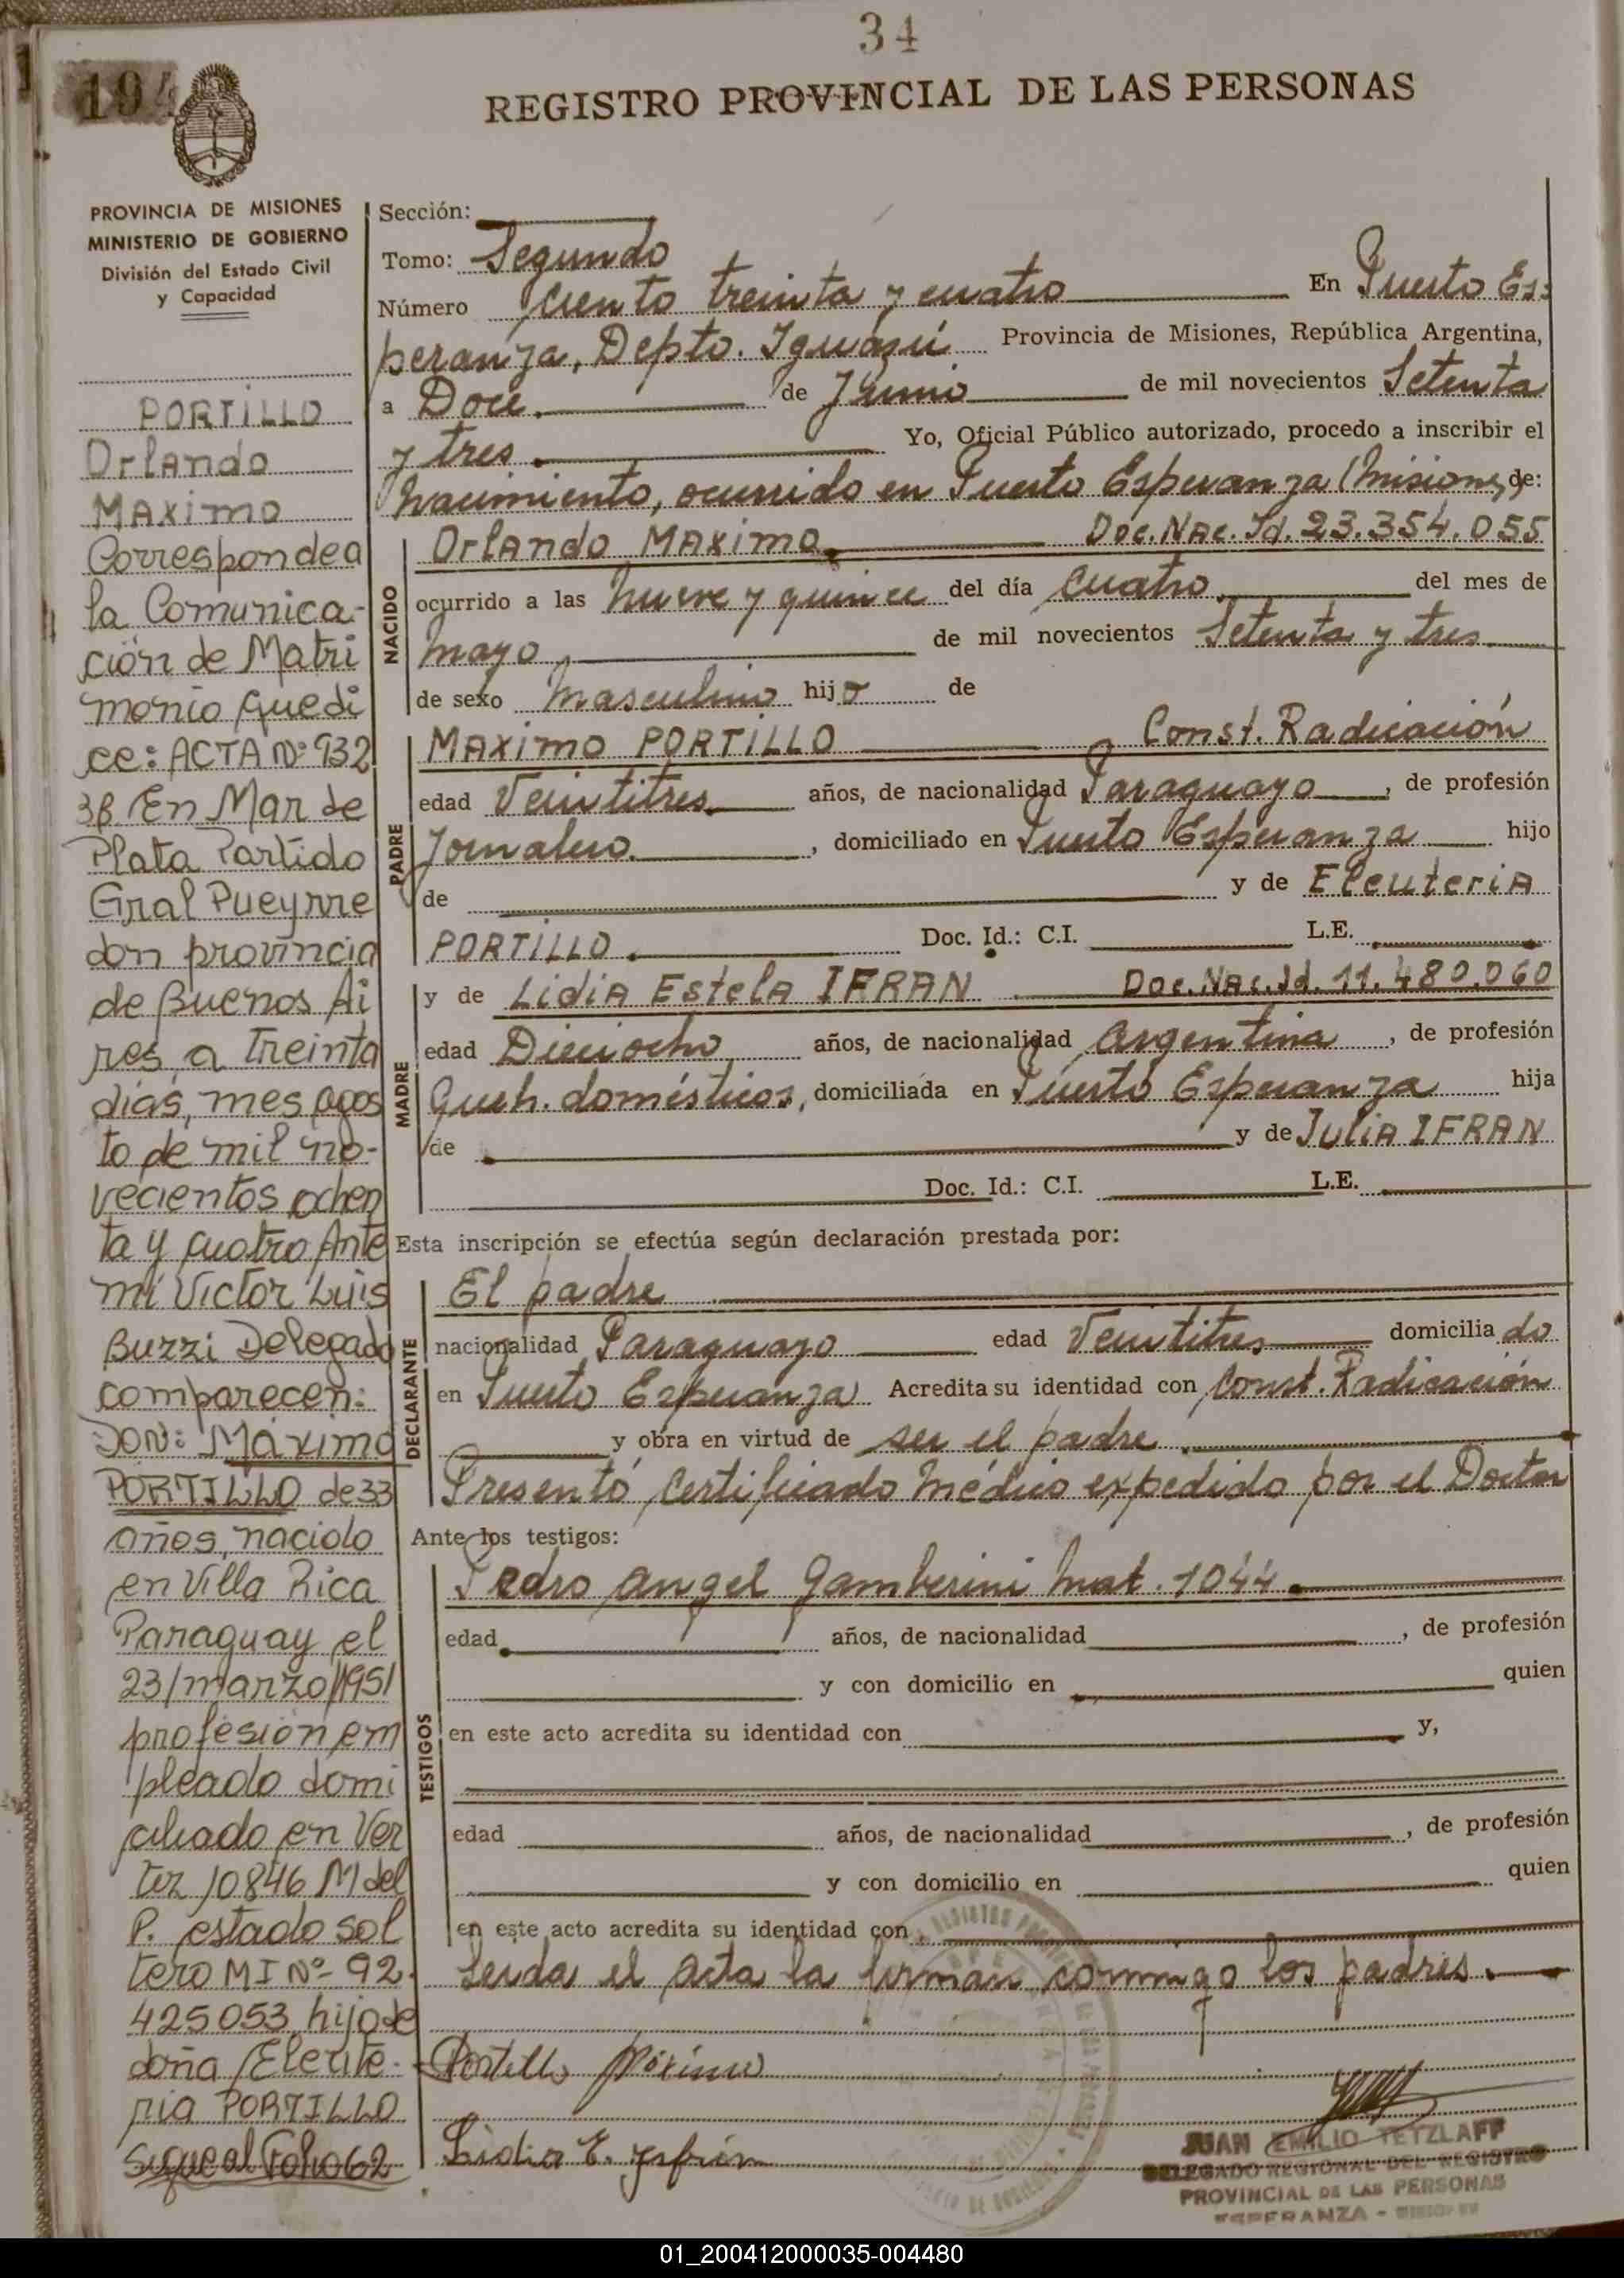 34
194
REGISTRO PROVINCIAL DE LAS PERSONAS
PROVINCIA DE MISIONES
MINISTERIO DE GOBIERNO
División del Estado Civil
y Capacidad
PORTILLO
Orlando
Maximo
Corresponde a
la Comunica-
ción de Matri
monio que di
ce: ACTA Nº 932
3B En Mar de
Plata Partido
Gral Pueyrre
don provincia
de Buenos Ai
res, a treinta
días, mes agos
to de mil no-
vecientos ochen
ta y cuatro Ante
mi Victor Luis
Buzzi Delegado
comparecen:
DON: Máximo
PORTILLO de 33
años, nacido
en Villa Rica
Paraguay el
23/marzo/1951
profesión em
pleado domi
ciliado en Ver
tiz 10846 M del
P. estado sol
tero MI Nº 92.
425053, hijo de
doña Eleute-
ria PORTILLO
Sigue al Folio 62
Sección:
Tomo: Segundo
Número Ciento treinta y cuatro En Puerto Es-
peranza, Depto. Iguazú Provincia de Misiones, República Argentina,
a Doce. de Junio de mil novecientos Setenta
y tres. Yo, Oficial Público autorizado, procedo a inscribir el
Nacimiento, ocurrido en Puerto Esperanza (Misiones) de:
NACIDO
Orlando Maximo. Doc. Nac. Id. 23.354.055
ocurrido a las nueve y quince del día cuatro del mes de
mayo de mil novecientos Setenta y tres
de sexo Masculino hijo de
PADRE
Maximo PORTILLO Const. Radicación
edad Veintitres años, de nacionalidad Paraguayo, de profesión
Jornalero, domiciliado en Puerto Esperanza hijo
de y de Eleuteria
PORTILLO. Doc. Id.: C.I. L.E.
MADRE
y de Lidia Estela IFRAN Doc. Nac. Id. 11.480.060
edad Dieciocho años, de nacionalidad Argentina, de profesión
Queh. domésticos, domiciliada en Puerto Esperanza hija
de y de Julia IFRAN
Doc. Id.: C.I. L.E.
Esta inscripción se efectúa según declaración prestada por:
DECLARANTE
El padre
nacionalidad Paraguayo edad Veintitres domiciliado
en Puerto Esperanza Acredita su identidad con Const. Radicación
y obra en virtud de ser el padre.
Presentó Certificado Médico expedido por el Doctor
Ante los testigos:
TESTIGOS
Pedro Angel Gamberini Mat. 1044.
edad años, de nacionalidad , de profesión
y con domicilio en quien
en este acto acredita su identidad con y,
edad años, de nacionalidad , de profesión
y con domicilio en quien
en este acto acredita su identidad con
Leida el acta la firman conmigo los padres.
Portillo Máximo
Lidia E. Yfrán
JUAN EMILIO TETZLAFF
DELEGADO REGIONAL DEL REGISTRO
PROVINCIAL DE LAS PERSONAS
ESPERANZA - MISIONES
01_200412000035-004480